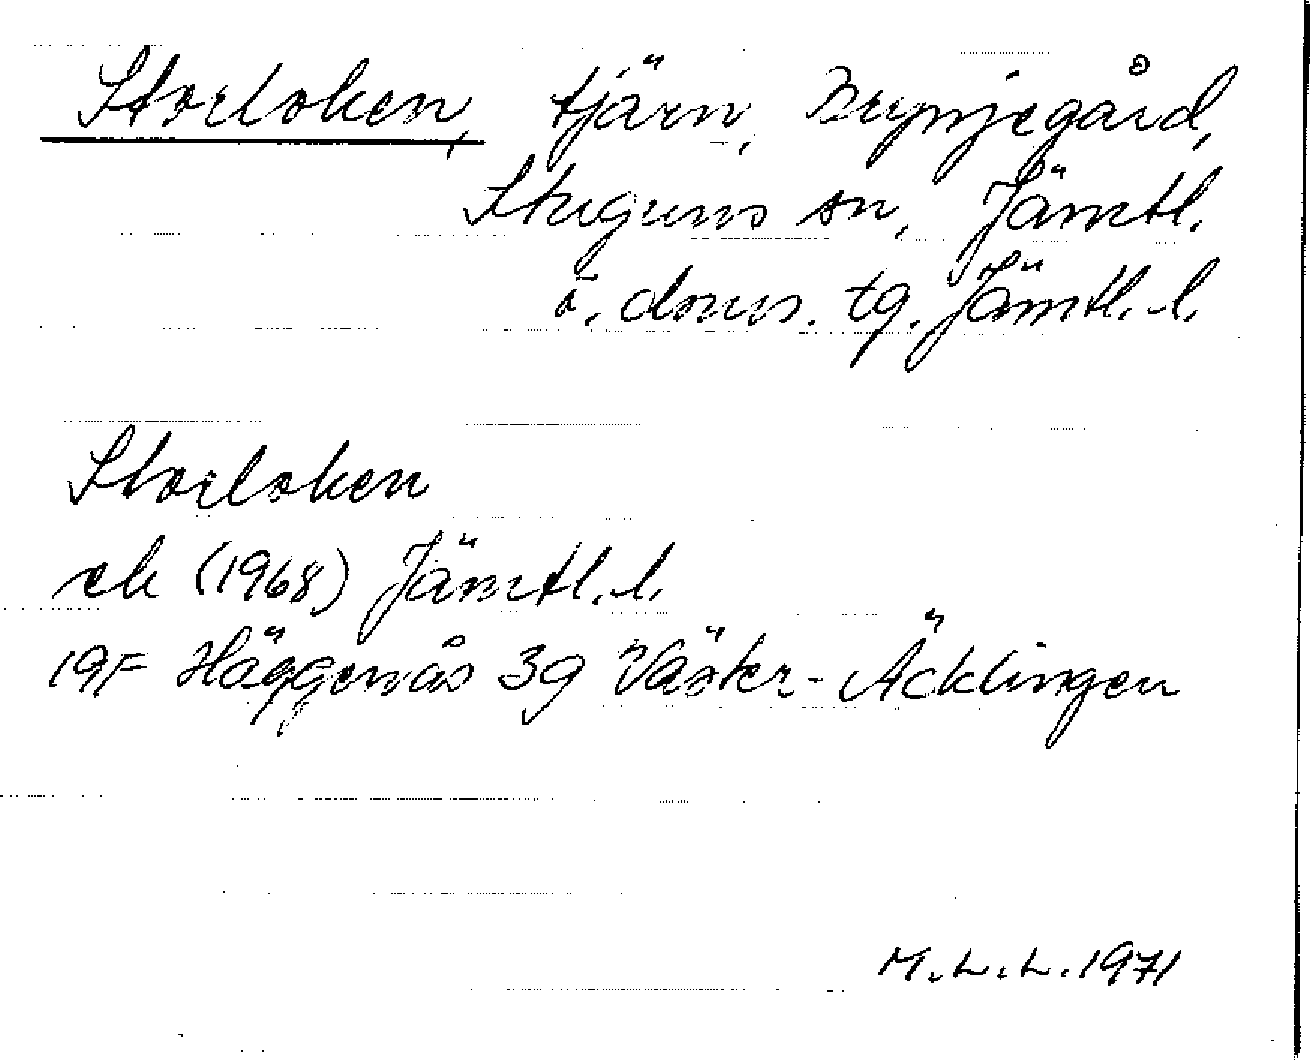 Storloken, tjärn, Brynjegård,
Stuguns sn, Jämtl.
ö. doms. tg. Jämtl. l.
Storloken
ek (1968) Jämtl. l.
19F Häggenås 3g Väster-Äcklingen
M.L.L. 1971